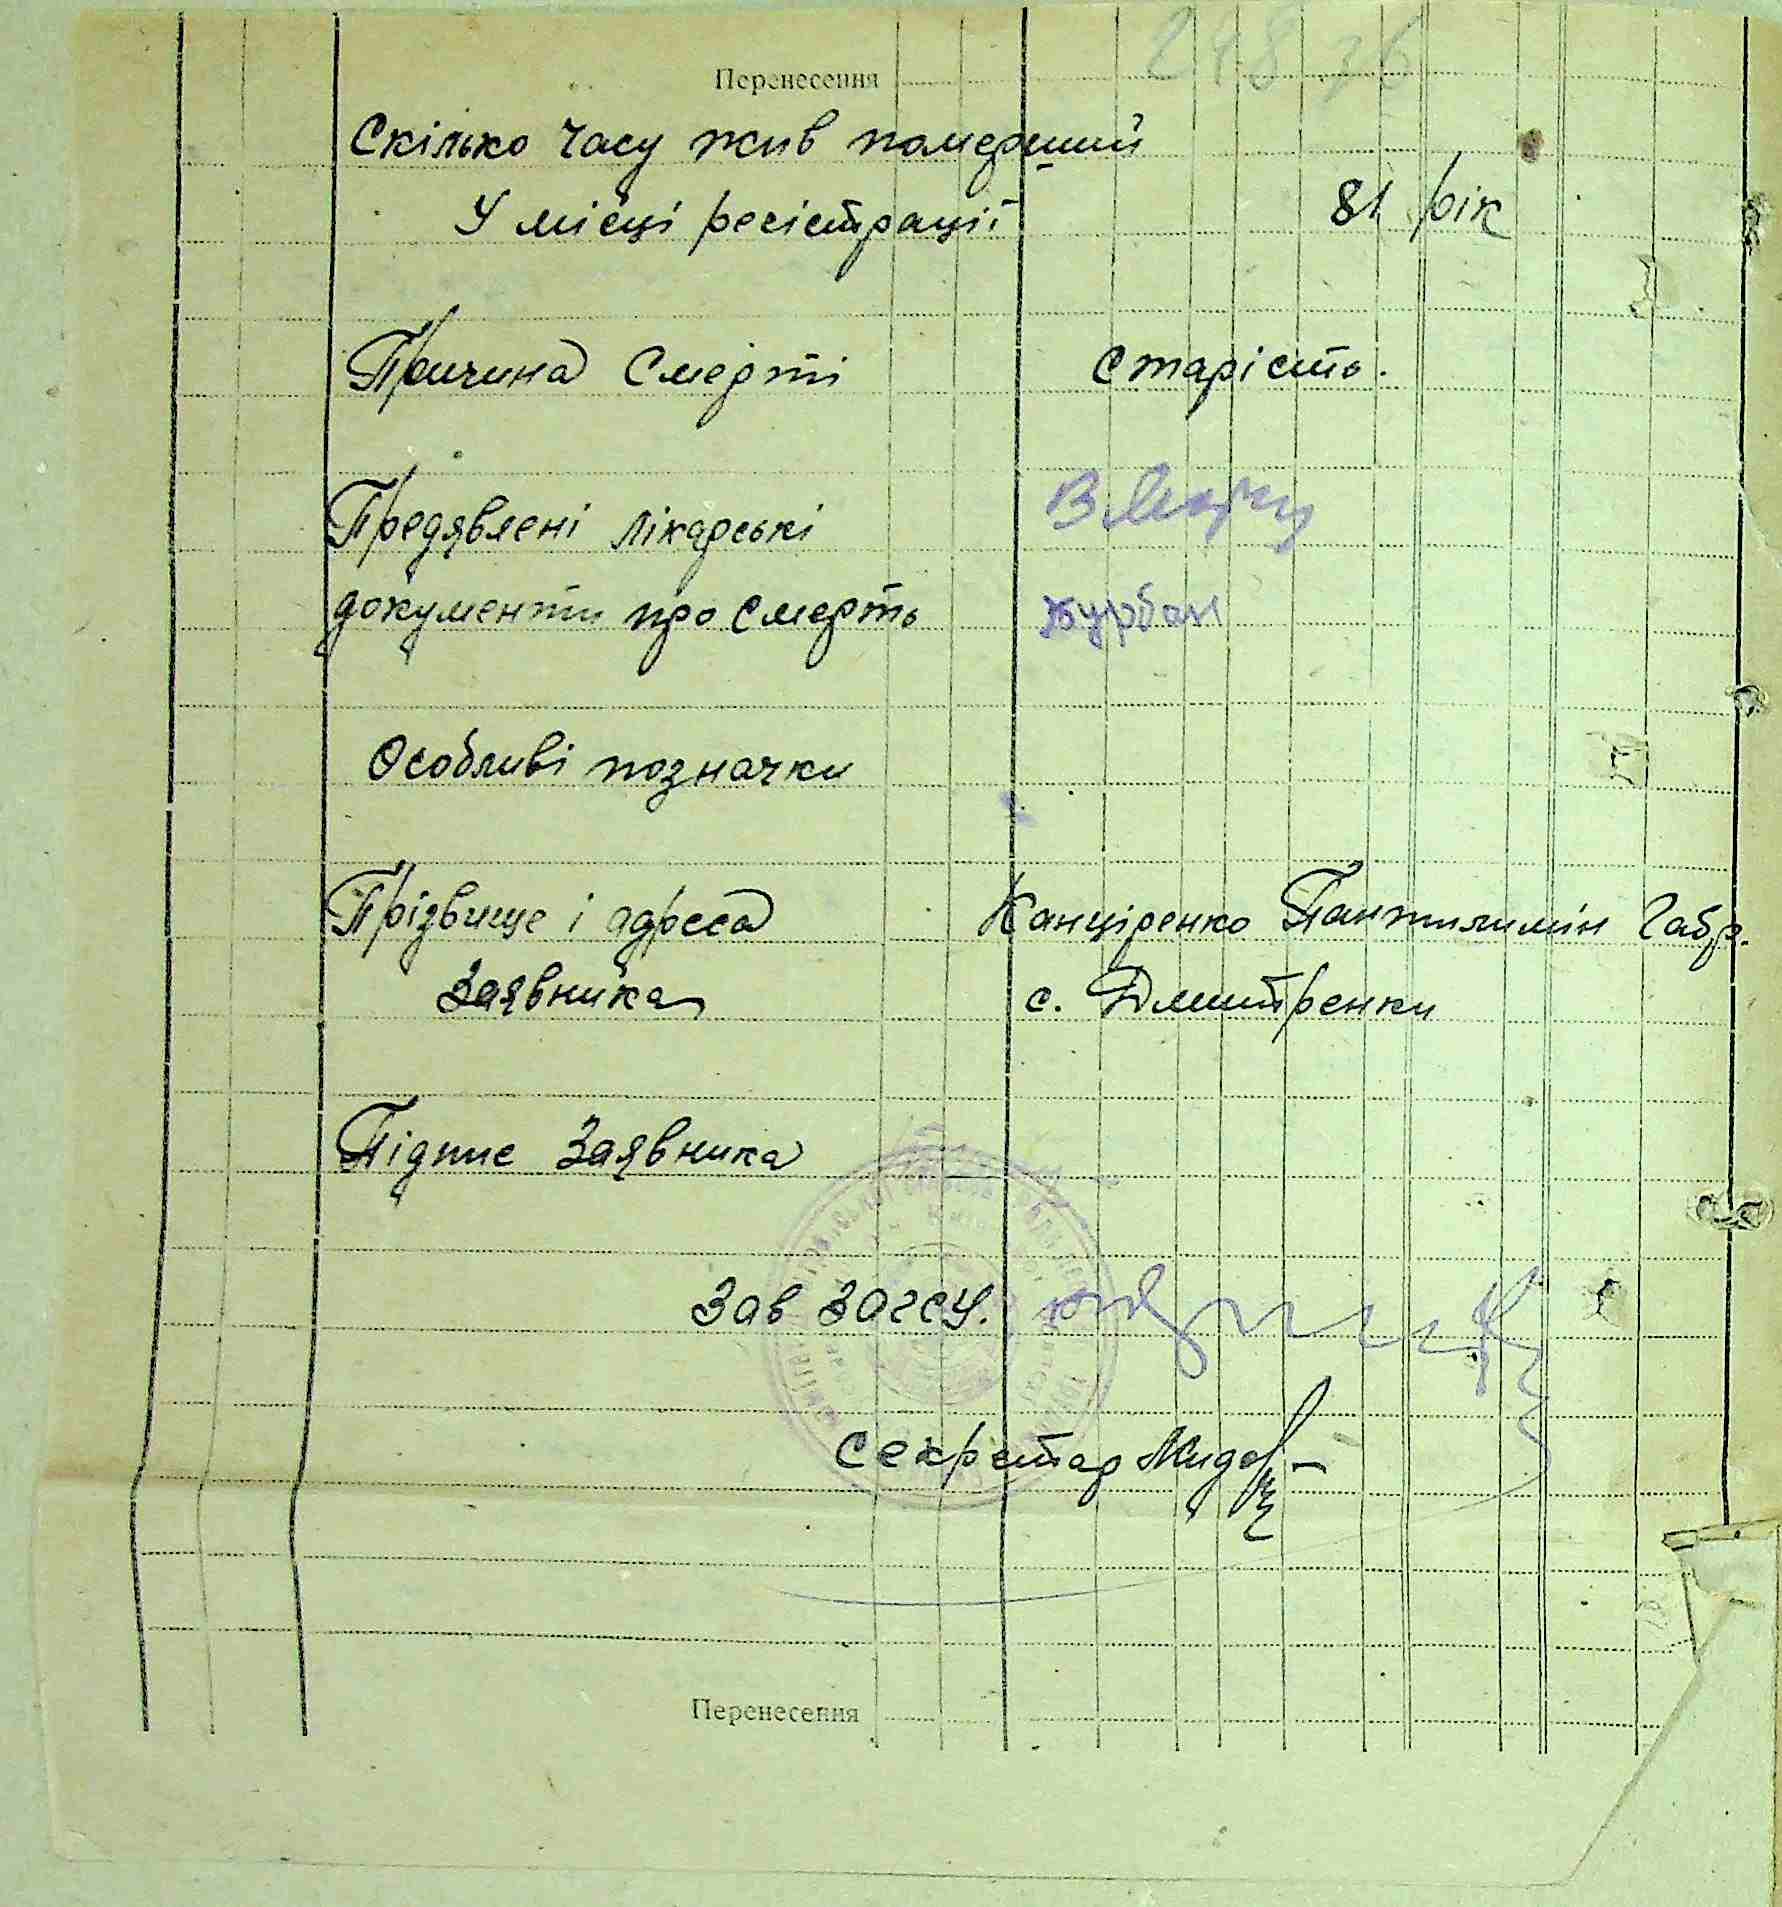 Перенесення
Скілько часу жив померший
у місці регістрації 81 рік
Причина смерти старість.
Предявлені лікарські
документи про смерть Курбан
Особливі позначки
Прізвище і адреса Канціренко Пантилимін Габр.
Заявника с. Дмитренки
Підпис Заявника
Зав ЗАГСУ.
Секретар
Перенесення